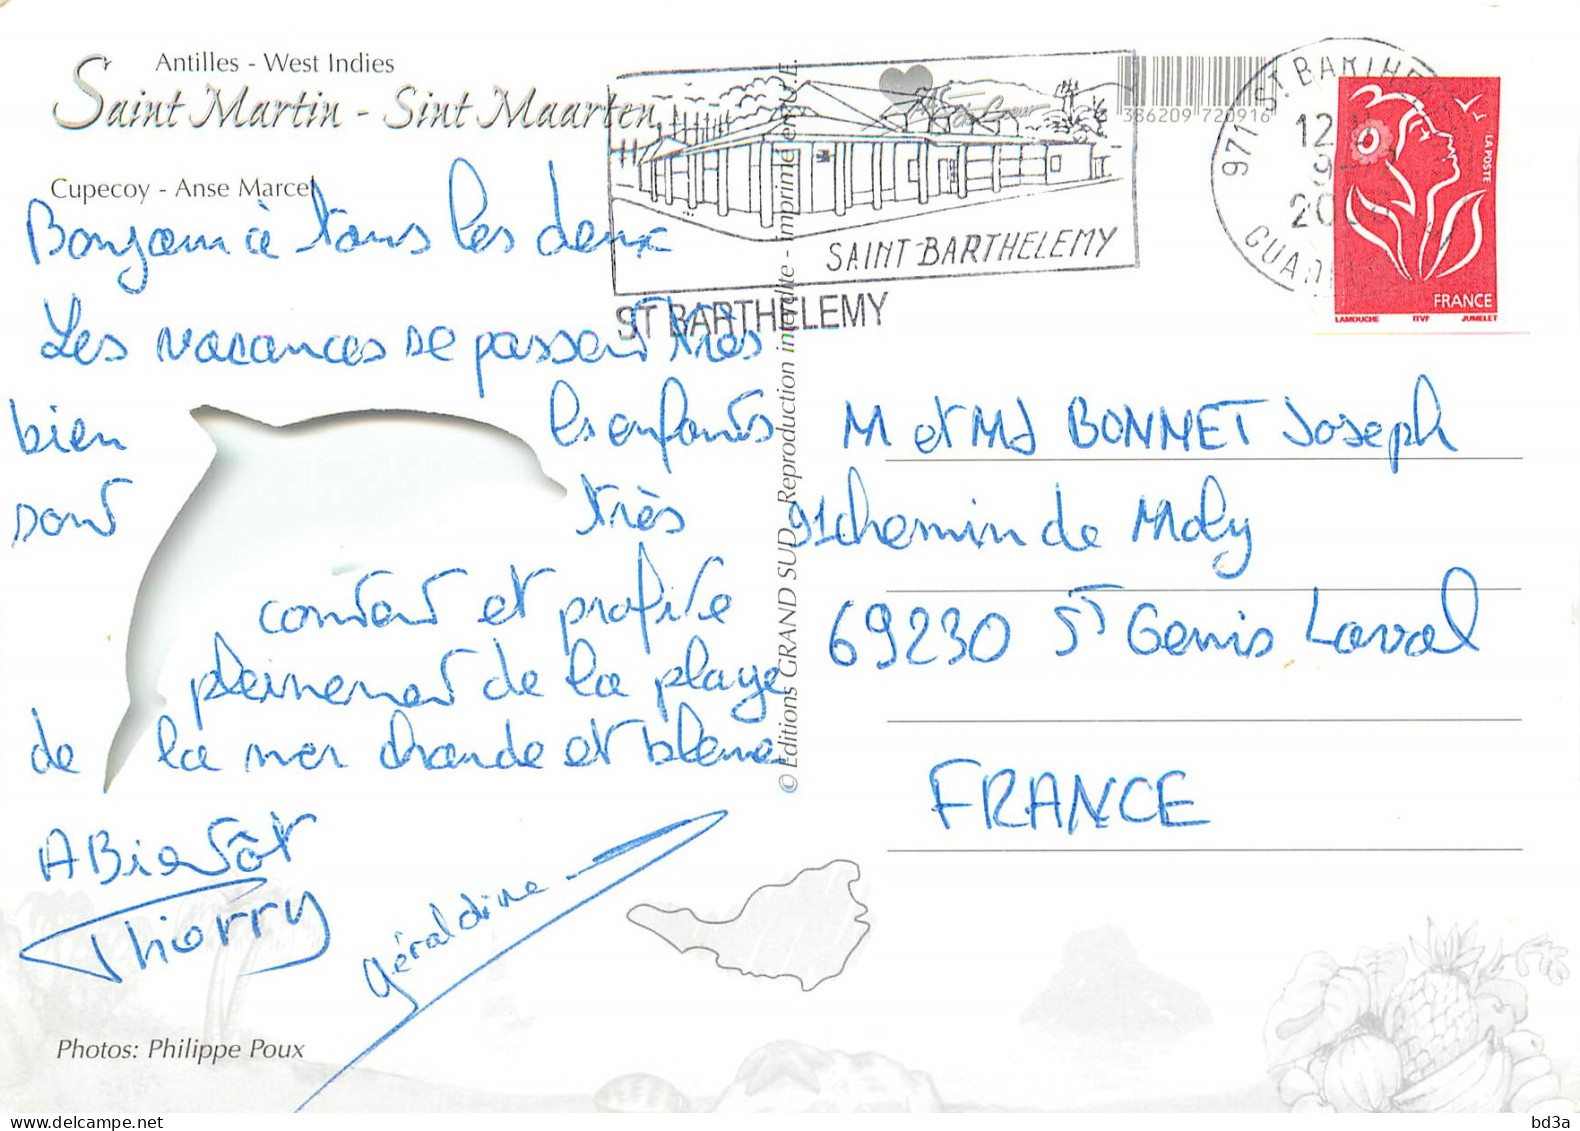 Antilles - West Indies
Saint Martin - Sint Maarten
Cupecoy - Anse Marcel
Bonjour à tous les deux
Les vacances se passent très
bien les enfants
sont très
content et profite
pleinement de la plage
de la mer chaude et bleue
A Bientôt
Thierry
géraldine
Photos: Philippe Poux
© Editions GRAND SUD - Reproduction interdite - imprimé en U.E.
Coup de Coeur
SAINT-BARTHELEMY
ST BARTHELEMY
3 386209 720916
971 ST. BARTHE
12
2
GUAD
LA POSTE
FRANCE
LAMOUCHE ITVF JUMELET
M et Md BONNET Joseph
91 chemin de Moly
69230 ST Genis Laval
FRANCE
bd3a